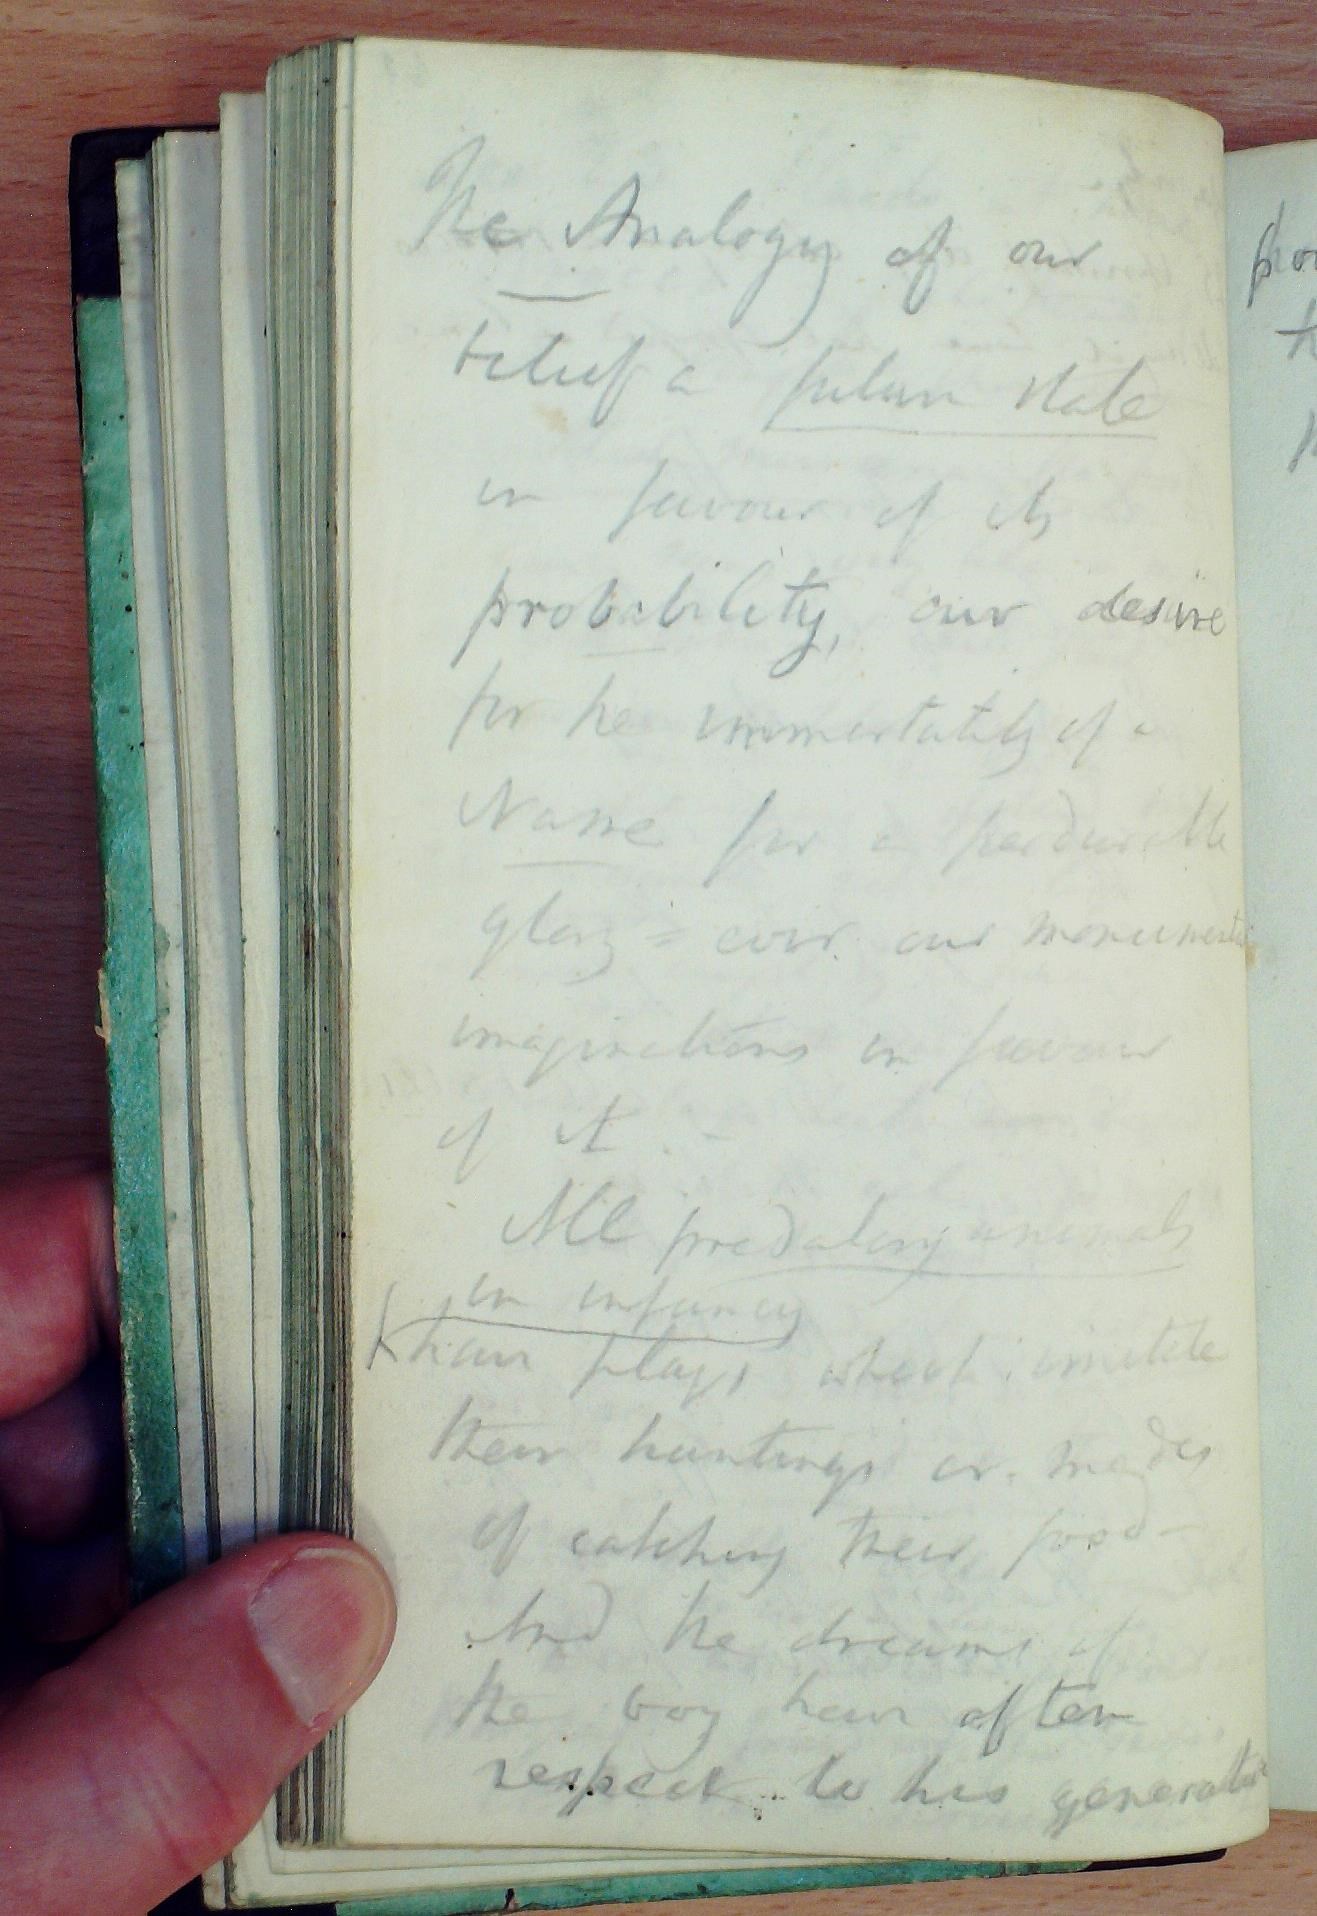 The Analogy of our
belief a future state
in favour of its
probability, our desire
for the immortality of a
Name for a perdurable
glory = our monument
imaginations in favour
of it -
All predatory animals
in infancy
have plays which imitate
their huntings or modes
of catching their food -
And the dreams of
the boy have often
respect to his